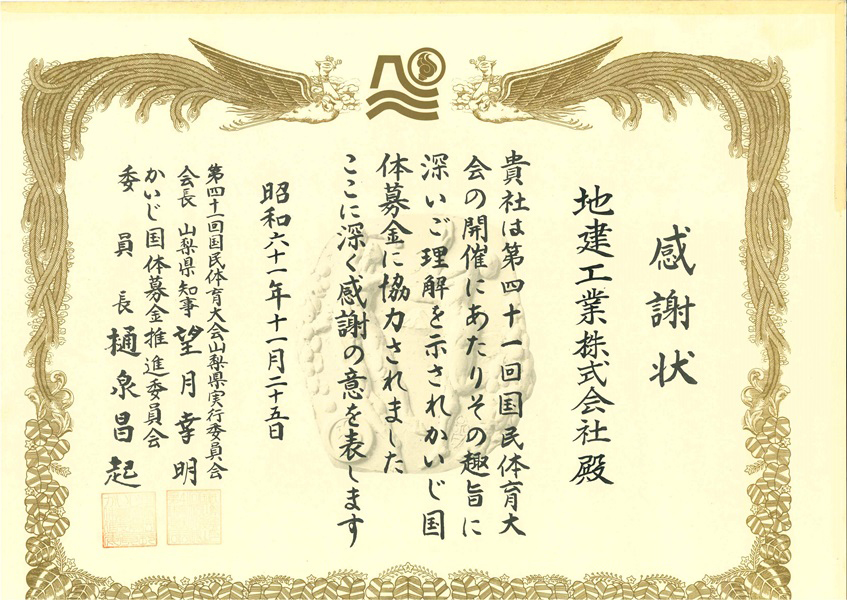 感謝状
地建工業株式会社 殿
貴社は第四十一回国民体育大
会の開催にあたりその趣旨に
深いご理解を示されかいじ国
体募金に協力されました
ここに深く感謝の意を表します
昭和六十一年十一月二十五日
第四十一回国民体育大会山梨県実行委員会
会長 山梨県知事 望月幸明
かいじ国体募金推進委員会
委員長 樋泉昌起